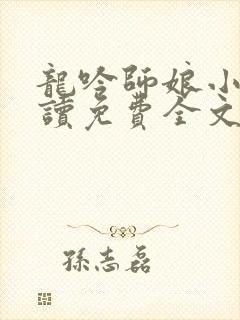 龍吟師娘小
讀免費全文
孫志磊